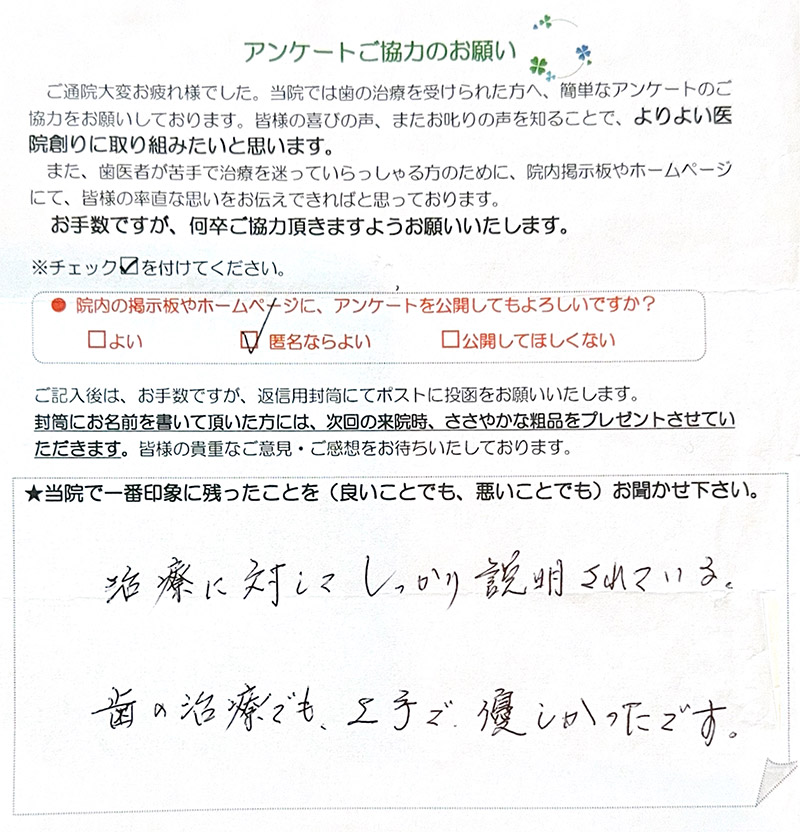 アンケートご協力のお願い
ご通院大変お疲れ様でした。当院では歯の治療を受けられた方へ、簡単なアンケートのご
協力をお願いしております。皆様の喜びの声、またお叱りの声を知ることで、よりよい医
院創りに取り組みたいと思います。
また、歯医者が苦手で治療を迷っていらっしゃる方のために、院内掲示板やホームページ
にて、皆様の率直な思いをお伝えできればと思っております。
お手数ですが、何卒ご協力頂きますようお願いいたします。
※チェック☑を付けてください。
● 院内の掲示板やホームページに、アンケートを公開してもよろしいですか？
□よい ☑匿名ならよい □公開してほしくない
ご記入後は、お手数ですが、返信用封筒にてポストに投函をお願いいたします。
封筒にお名前を書いて頂いた方には、次回の来院時、ささやかな粗品をプレゼントさせてい
ただきます。皆様の貴重なご意見・ご感想をお待ちいたしております。
★当院で一番印象に残ったことを（良いことでも、悪いことでも）お聞かせ下さい。
治療に対して しっかり説明されている。
歯の治療でも、上手で、優しかったです。